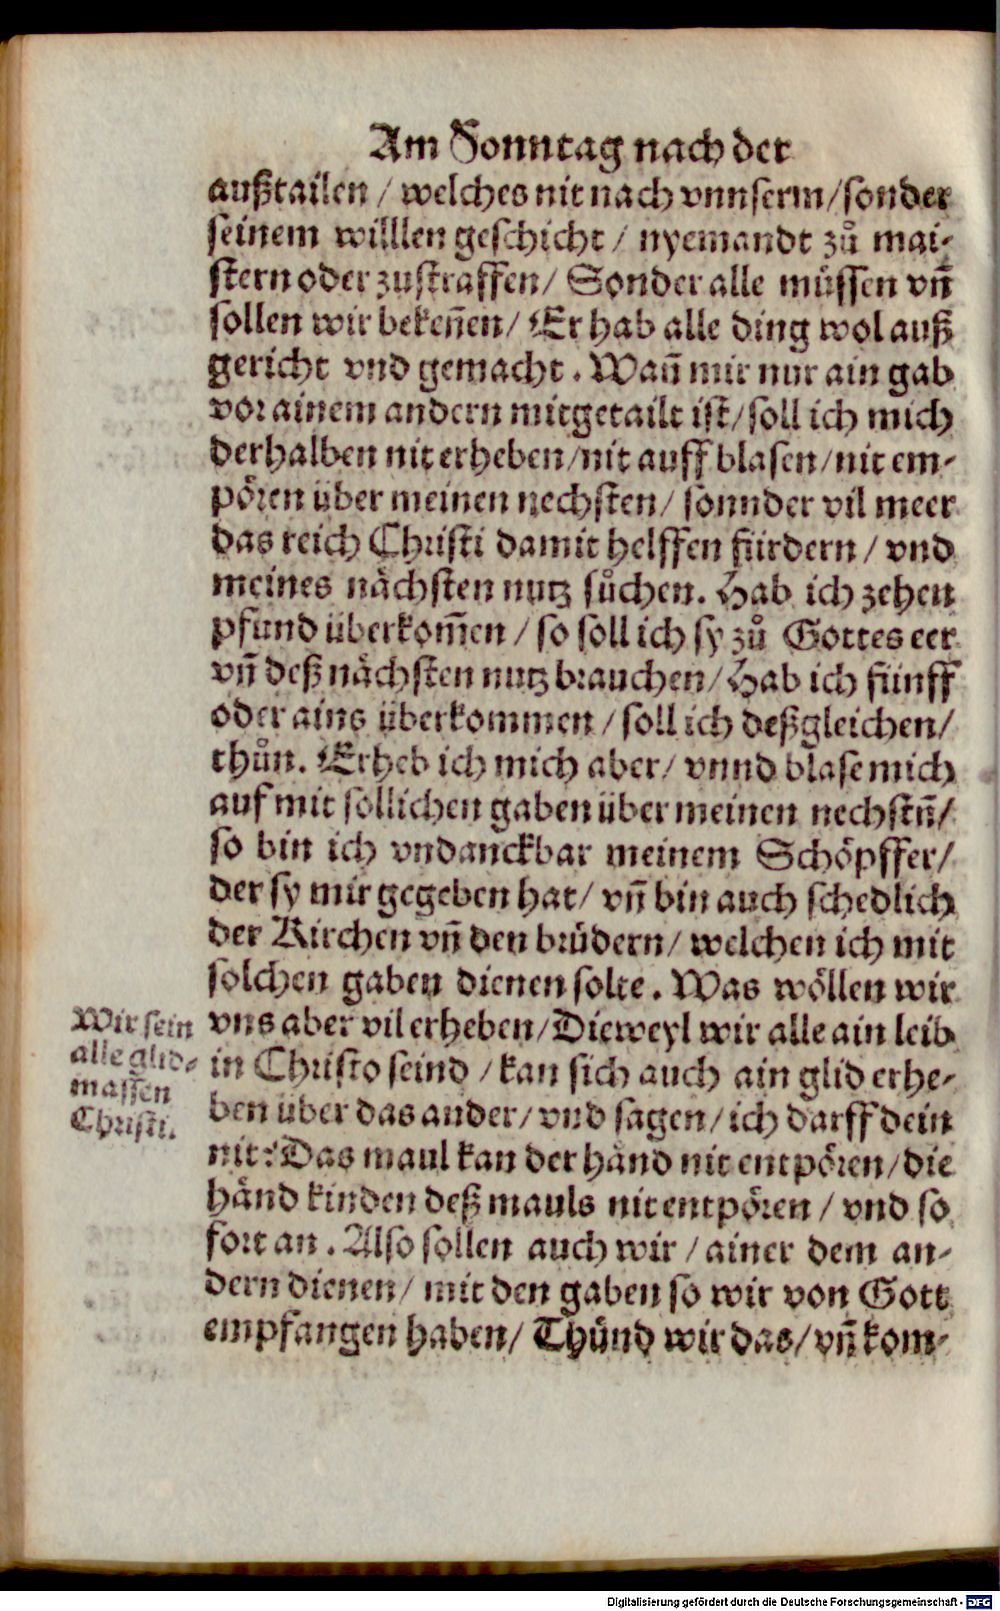 Am Sonntag nach der
außtailen / welches nit nach vnnserm / sonder
seinem willlen geschicht / nyemandt zů mai-
stern oder zustraffen / Sonder alle müssen vn̄
sollen wir beken̄en / Er hab alle ding wol auß
gericht vnd gemacht. Wan̄ mir nur ain gab
vor ainem andern mitgetailt ist / soll ich mich
derhalben nit erheben / nit auff blasen / nit em-
pören über meinen nechsten / sonnder vil meer
das reich Christi damit helffen fürdern / vnd
meines nächsten nutz sůchen. Hab ich zehen
pfund überkom̄en / so soll ich sy zů Gottes eer
vn̄ deß nächsten nutz brauchen / Hab ich fünff
oder ains überkommen / soll ich deßgleichen /
thůn. Erheb ich mich aber / vnnd blase mich
auf mit sollichen gaben über meinen nechstn̄ /
so bin ich vndanckbar meinem Schöpffer /
der sy mir gegeben hat / vn̄ bin auch schedlich
der Kirchen vn̄ den brüdern / welchen ich mit
solchen gaben dienen solte. Was wöllen wir
vns aber vil erheben / Dieweyl wir alle ain leib
in Christo seind / kan sich auch ain glid erhe-
ben über das ander / vnd sagen / ich darff dein
nit? Das maul kan der händ nit entpören / die
händ kinden deß mauls nit entpören / vnd so
fort an. Also sollen auch wir / ainer dem an-
dern dienen / mit den gaben so wir von Gott
empfangen haben / Thünd wir das / vn̄ kom-
Wir sein
alle glid-
massen
Christi.
Digitalisierung gefördert durch die Deutsche Forschungsgemeinschaft - DFG